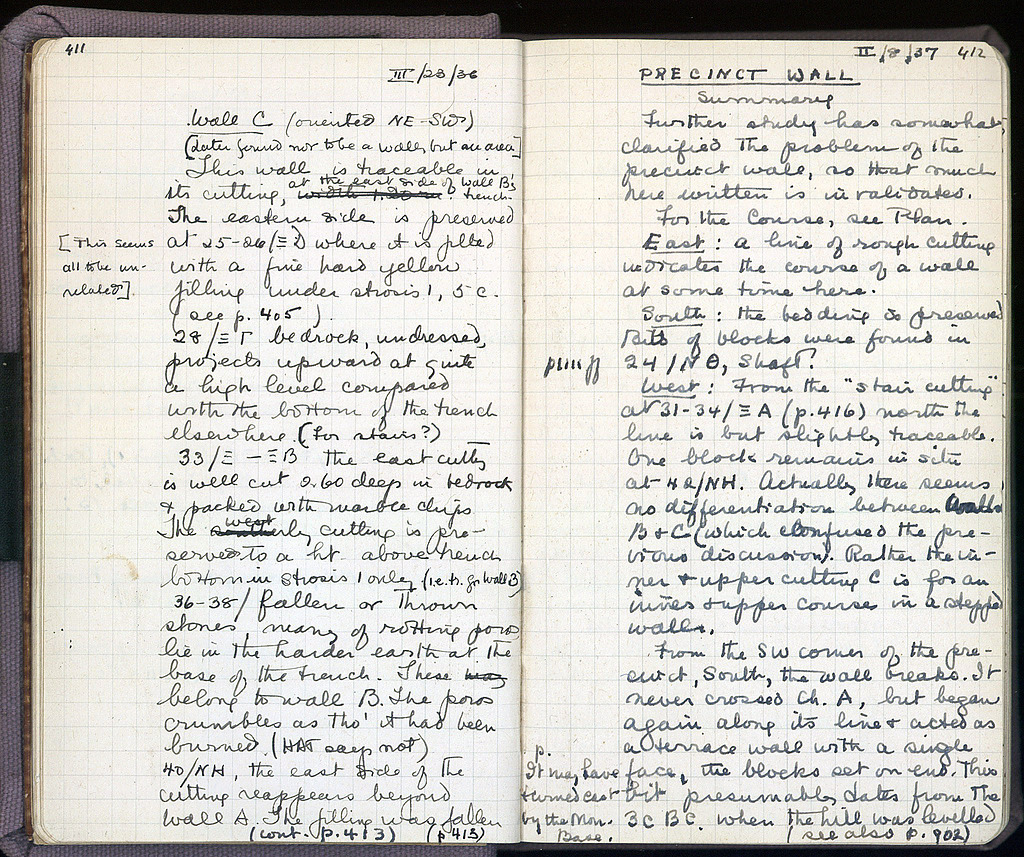 411
III/23/36
Wall C (oriented NE-SW)
[Later found not to be a wall, but an area]
This wall is traceable in
its cutting, at the east side of wall B's trench.
The eastern side is preserved
at 25-26/Ξ Δ where it is filled
[This seems
all to be un-
related].
with a fine hard yellow
filling under strosis 1, 5 c.
(see p. 405).
28/Ξ Γ bedrock, undressed,
projects upward at quite
a high level compared
with the bottom of the trench
elsewhere. (For stairs?)
33/Ξ - Ξ B the east cutting
is well cut 0.60 deep in bedrock
& packed with marble chips
The west cutting is pre-
served to a ht. above trench
bottom in strosis 1 only (i.e. to gr. wall B)
36-38/ fallen or thrown
stones, many of rotting poros
lie in the harder earth at the
base of the trench. These
belong to wall B. The poros
crumbles as tho' it had been
burned (HAT says not)
40/NH, the east side of the
cutting reappears beyond
wall A. The filling was fallen
(cont. p. 413) (p 413)
II/8/37 412
PRECINCT WALL
Summary
Further study has somewhat
clarified the problem of the
precinct wall, so that much
here written is invalidated.
For the Course, see Plan.
East: a line of rough cutting
indicates the course of a wall
at some time here.
South: the bedding is preserved
Bits of blocks were found in
24/N Θ, Shaft.
West: From the "stair cutting"
at 31-34/Ξ A (p. 416) north the
line is but slightly traceable.
One block remains in situ
at 42/NH. Actually there seems
no differentiation between walls
B & C (which confused the pre-
vious discussion). Rather the in-
ner & upper cutting C is for an
inner & upper course in a stepped
wall.
From the SW corner of the pre-
cinct, South, the wall breaks. It
never crossed Ch. A, but began
again along its line & acted as
a terrace wall with a single
face, the blocks set on end. This
bit presumably dates from the
3c BC. when the hill was levelled
(see also p. 902)
It may have
turned east
by the Mon.
Base.